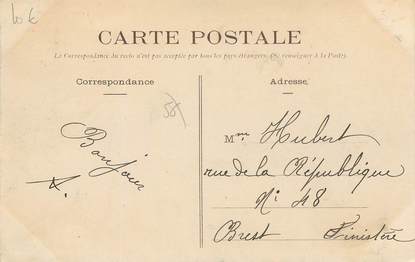 10 €
CARTE POSTALE
La Correspondance du recto n'est pas acceptée par tous les pays étrangers. (Se renseigner à la Poste).
Correspondance
Adresse
58
Bonjour
A.
Mme Hubert
rue de la République
No 48
Brest Finistère